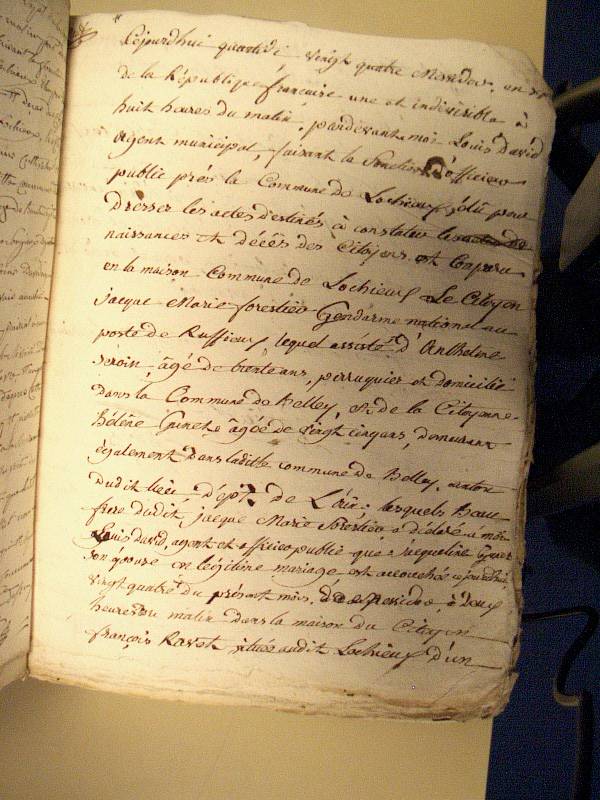 Cejourdhui quartidi, vingt quatre Messidor, en
de la République française une et indivisible à
huit heures du matin, pardevant moi Louis David
agent municipal, faisant la fonction d'officier
public près la Commune de Lochieux, élû pour
Dresser les actes destinés à constater les
naissances et décès des Citoyens, est comparu
en la maison Commune de Lochieux Le Citoyen
jacque Marie forestier Gendarme national au
poste de Ruffieux, lequel assisté d'Anthelme
âgé de trente ans, perruquier et domicilié
dans la Commune de Belley, et de la Citoyenne
hélène âgée de vingt cinq ans, demeurant
également dans ladite commune de Belley, canton
dudit lieu, dépt. de L'ain; lesquels
frere dudit, jacque Marie forestier a déclaré à moi
Louis david, agent et officier public que jacqueline
son épouse en légitime mariage est accouchée cejourdhui,
vingt quatre du présent mois, de Messidor, à
heures du matin dans la maison du Citoyen
françois Ravet située audit Lochieux d'un